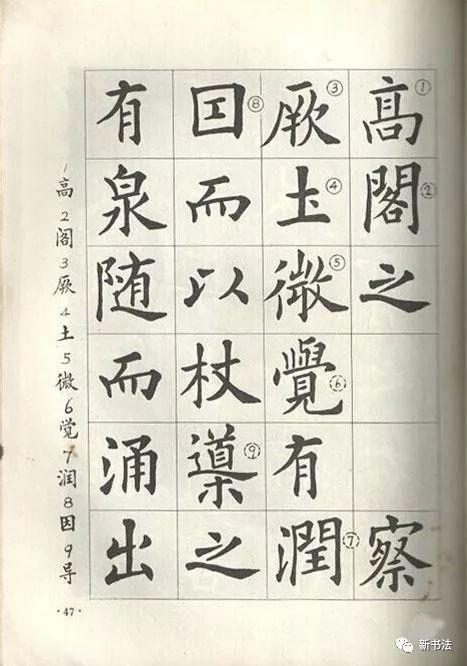 髙①閣②之察
厥③圡④微⑤覺⑥有潤⑦
囙⑧而以杖導⑨之
有泉随而涌出
1高2阁3厥4土5微6觉7润8因9导
·47·
新书法